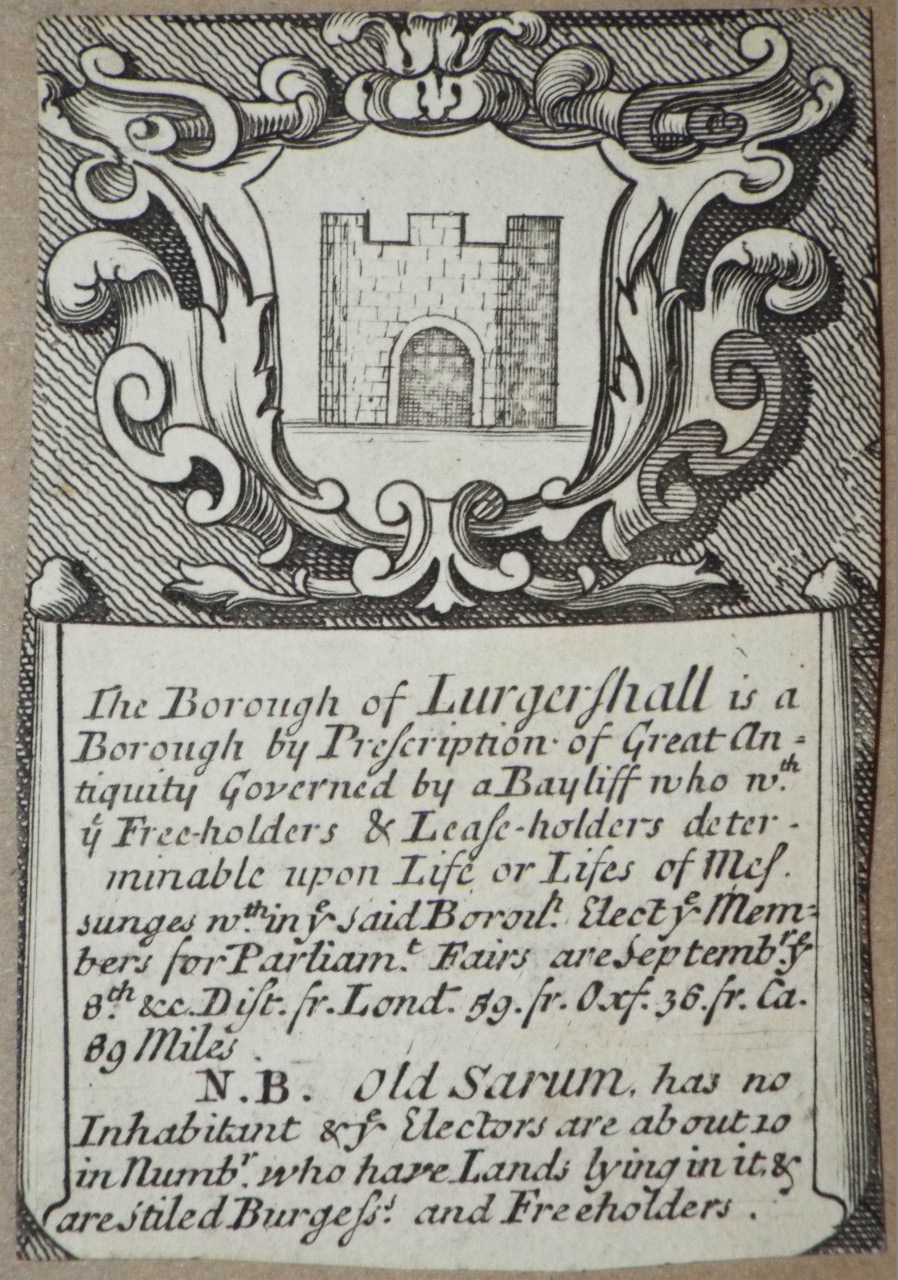 The Borough of Lurgerſhall is a
Borough by Preſcription of Great An=
tiquity Governed by a Bayliff who wth.
ye Free-holders & Leaſe-holders deter-
minable upon Life or Lifes of Meſ.
sunges wth.in ye said Borouh. Elect ye Mem=
bers for Parliamt. Fairs are Septembr. ye
8th. &c. Diſt. fr. Lond. 59. fr. Oxf. 36. fr. Ca.
89 Miles.
N.B. Old Sarum, has no
Inhabitant & ye Electors are about 10
in Numbr. who have Lands lying in it, &
are stiled Burgeſss. and Freeholders.